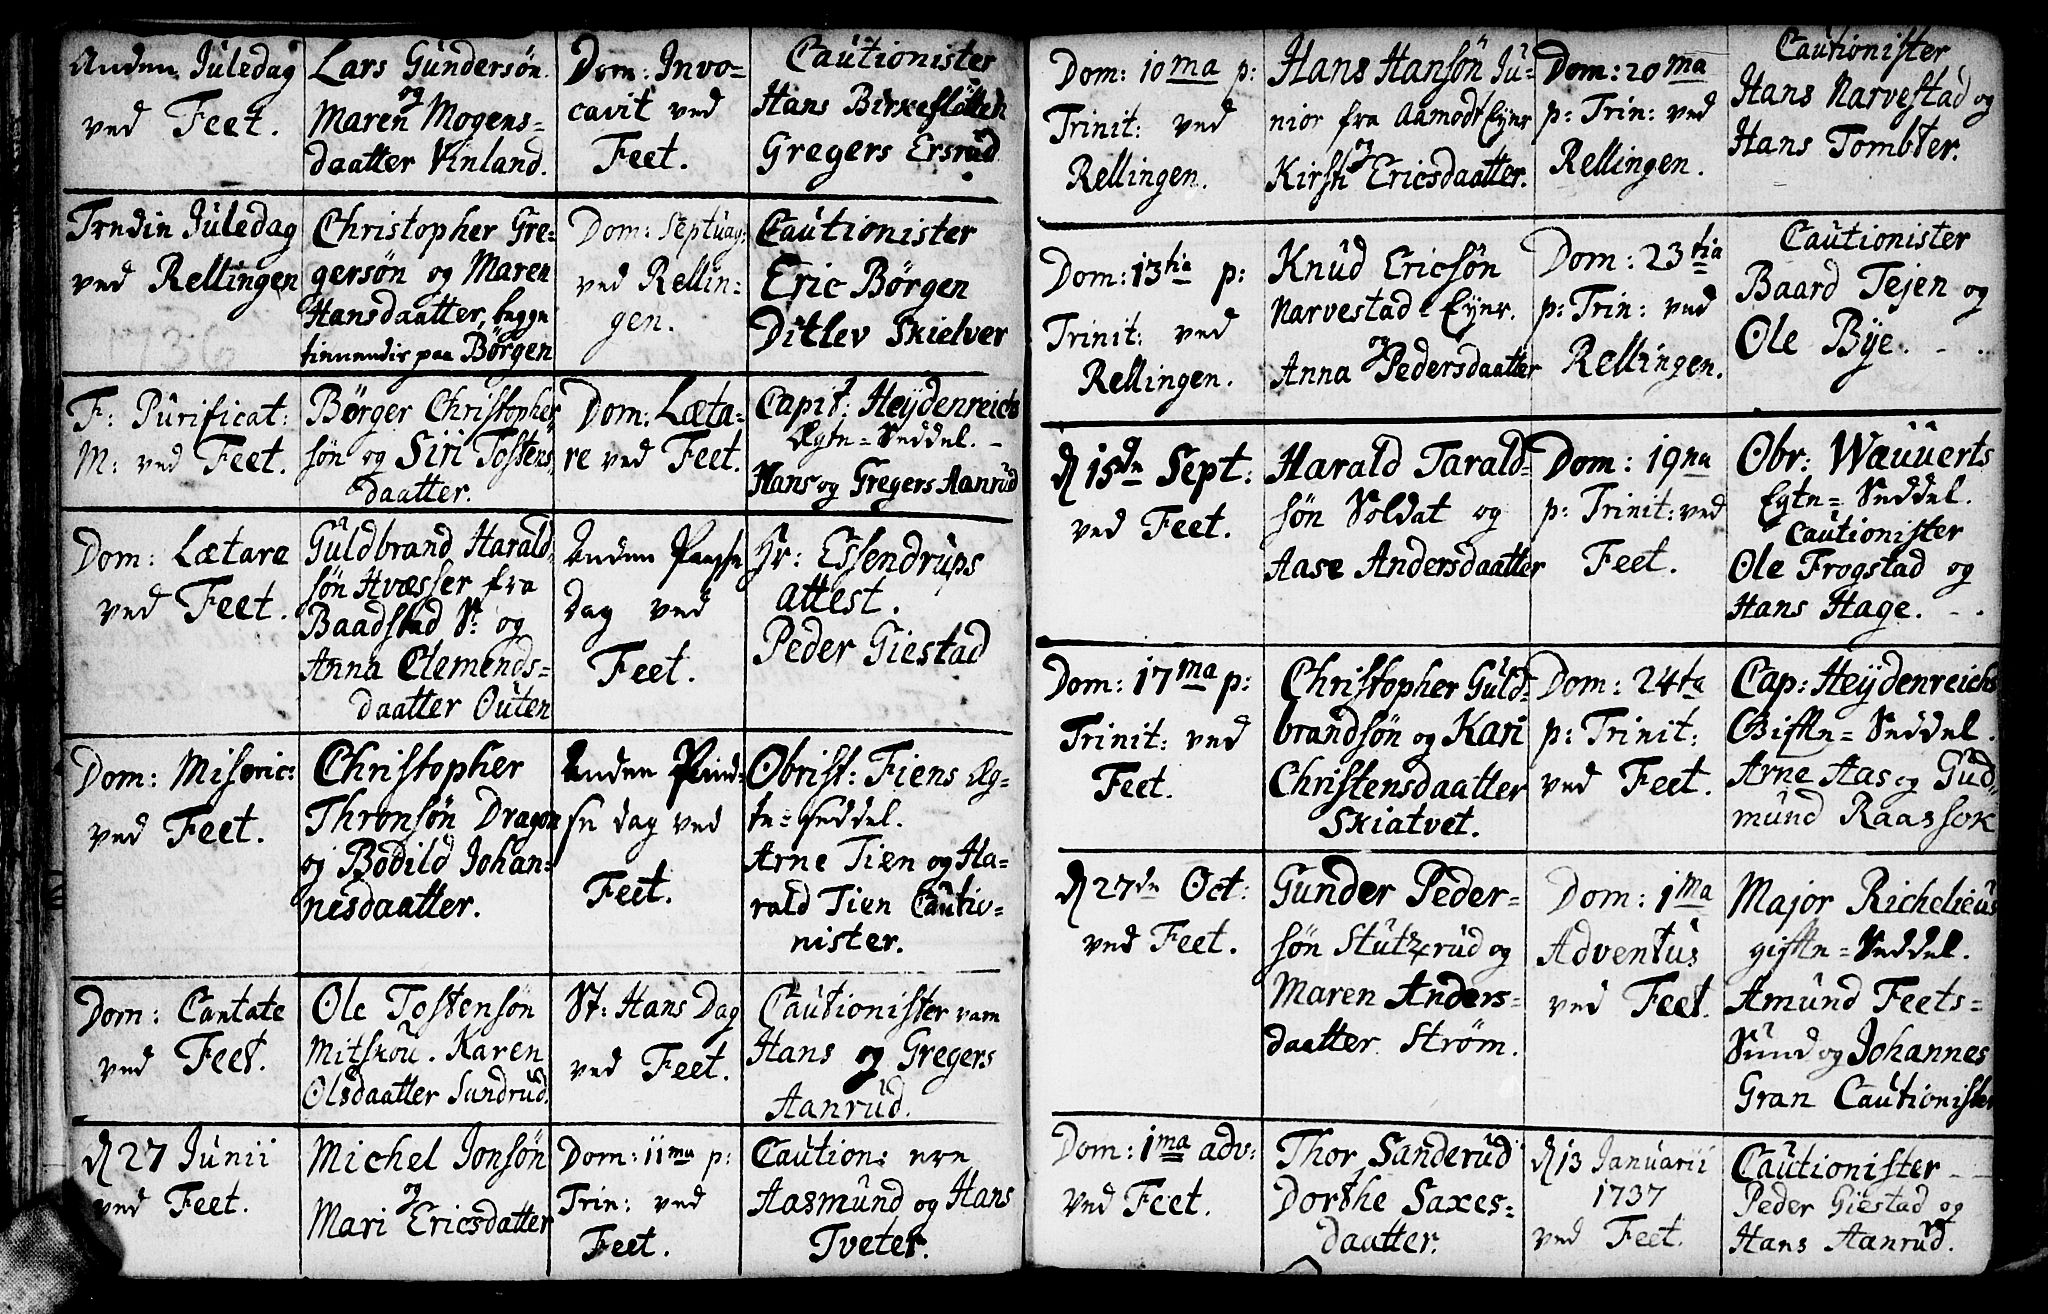 Anden Juledag
ved Feet.
Lars Gundersøn
og
Maren Mogens=
daatter Vinland.
Dom: Invo=
cavit ved
Feet.
Cautionister
Hans Birkesletten
Gregers Ersrud
Juledag
ved Rellingen
Christopher Gre=
gersøn og Maren
Hansdaatter, begge
tienendis paa Børgen
Dom: Septuag:
ved Rellin=
gen.
Cautionister
Eric Børgen
Ditlev Skielver
F: Purificat:
M: ved Feet.
Børger Christopher
søn og Siri Tostens
daatter.
Dom: Læta=
re ved Feet.
Capit: Heÿdenreichs
Ægte=Seddel. -
Hans og Gregers Aanrud
Dom: Lætare
ved Feet.
Guldbrand Harald=
søn Hvæsser fra
Baadstad S: og
Anna Clemends=
daatter Outen
Anden Paaske
Dag ved
Feet.
Hr: Essendrups
attest.
Peder Giestad
Dom: Miseric:
ved Feet.
Christopher
Thronsøn Dragon
og Bodild Johan=
nesdaatter.
Anden Pind=
se dag ved
Feet.
Obrist: Fiens Æg=
te=seddel.
Arne Tien og Ha=
rald Tien Cautio=
nister.
Dom: Cantate
ved Feet.
Ole Tostensøn
Mitskou. Karen
Olsdaatter Sundrud.
St: Hans Dag
ved Feet.
Cautionister vare
Hans og Gregers
Aanrud.
d 27 Junii
ved Feet.
Michel Jonsøn
og
Mari Ericsdatter
Dom: 11ma p:
Trin: ved
Feet.
Caution: ere
Aasmund og Hans
Tveter.
Dom: 10ma p:
Trinit: ved
Rellingen.
Hans Hansøn Ju=
nior fra Aamodt Eyer
og
Kirsti Ericsdaatter.
Dom: 20ma
p: Trin: ved
Rellingen.
Cautionister
Hans Narvestad og
Hans Tombter.
Dom: 13tia p:
Trinit: ved
Rellingen.
Knud Ericsøn
Narvestad Eyer.
og
Anna Pedersdaatter
Dom: 23tia
p: Trin: ved
Rellingen.
Cautionister
Baard Tejen og
Ole Bÿe. - .
d 15de Sept:
ved Feet.
Harald Tarald=
søn Soldat og
Aase Andersdaatter
Dom: 19na
p: Trinit: ved
Feet.
Obr: Wauuerts
Egte=Seddel.
Cautionister
Ole Frogstad og
Hans Hage. - .
Dom: 17ma p:
Trinit: ved
Feet.
Christopher Guld=
brandsøn og Kari
Christensdaatter
Skiatvet.
Dom: 24ta
p: Trinit:
ved Feet.
Cap: Heÿdenreichs
Gifte=Seddel.
Arne Aas og Gud=
mund Raassok
d 27de Oct:
ved Feet.
Gunder Peder=
søn Stutzrud og
Maren Anders=
daatter Strøm.
Dom: 1ma
Adventus
ved Feet.
Major Richelieus
gifte=Seddel.
Amund Feets=
Sund og Johannes
Gran Cautionister
Dom: 1ma adv:
ved Feet.
Thor Sanderud
Dorthe Saxes=
daatter.
d 13 Januarii
1737
ved Feet.
Cautionister - -
Peder Giestad og
Hans Aanrud.